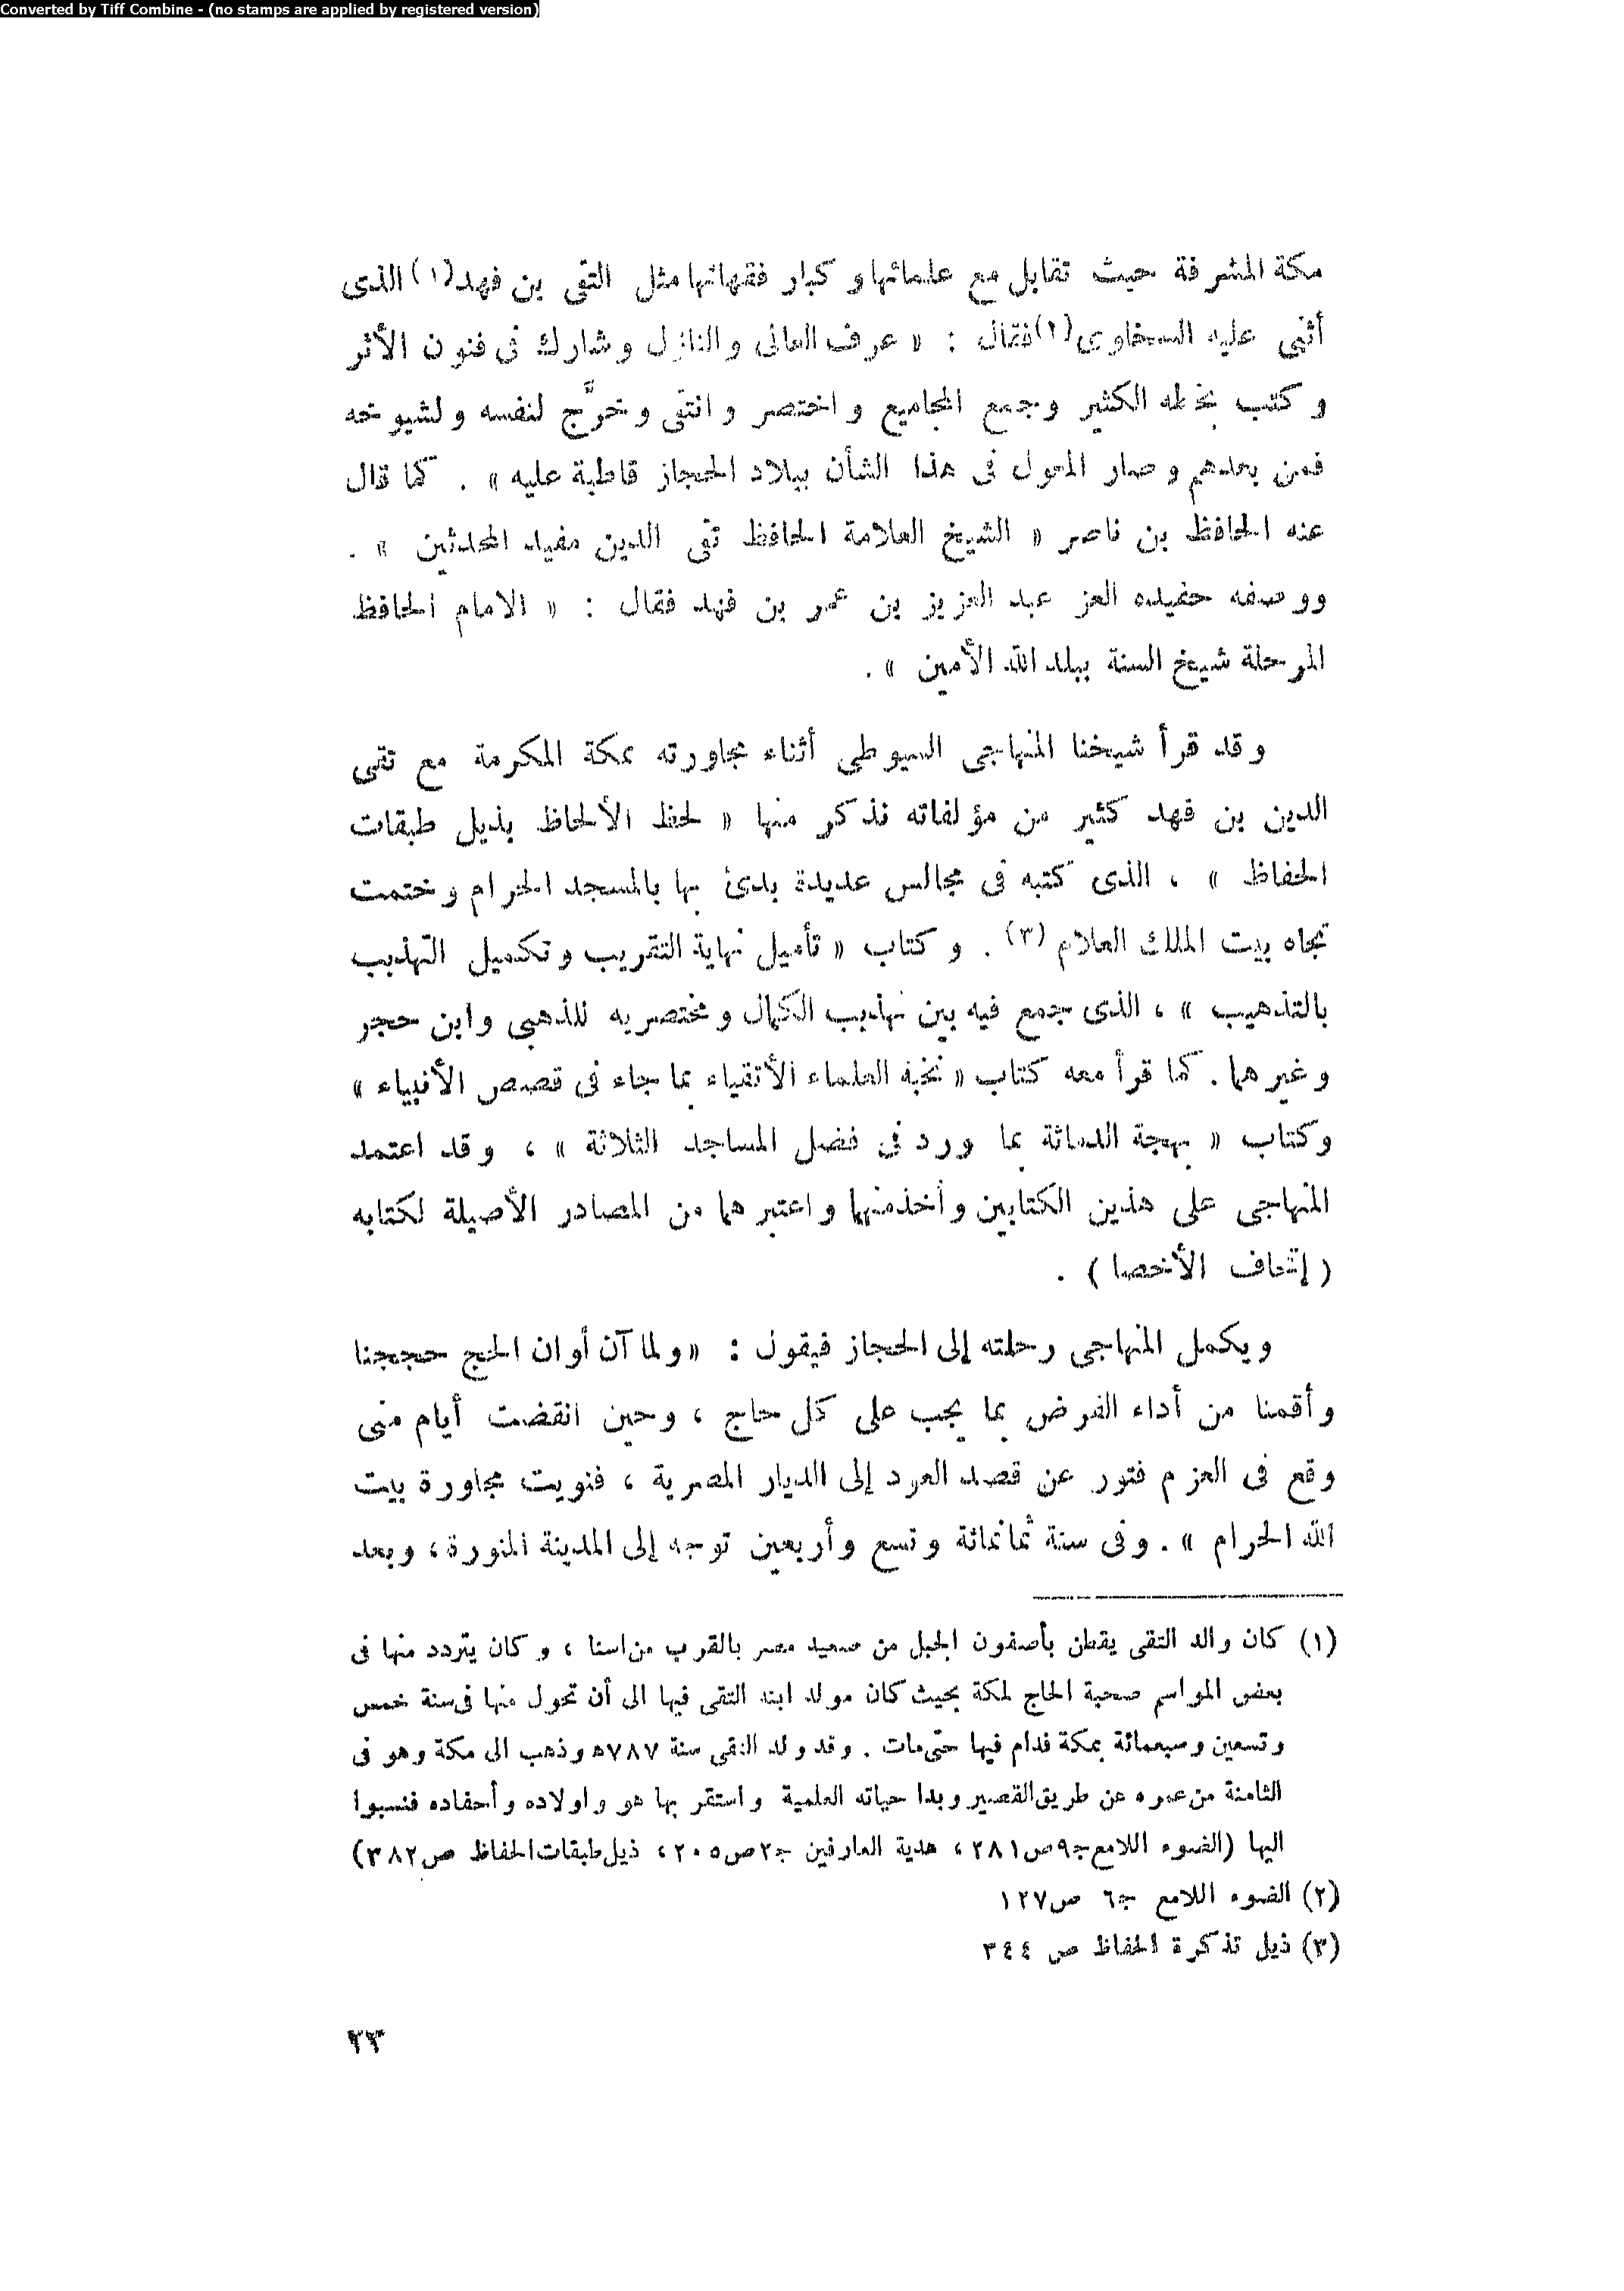 Converted by Tiff Combine - (no stamps are applied by registered version)
مكة المشرفة حيث تقابل مع علمائها وكبار فقهائها مثل التقى بن فهد(١) الذى
أثنى عليه السخاوى(٢) فقال : « عرف العالى والنازل وشارك فى فنون الأثر
وكتب بخطه الكثير وجمع المجاميع واختصر وانتقى وخرَّج لنفسه ولشيوخه
فمن بعدهم وصار المعول فى هذا الشأن ببلاد الحجاز قاطبة عليه » . كما قال
عنه الحافظ بن ناصر « الشيخ العلامة الحافظ تقى الدين مفيد المحدثين » .
ووصفه حفيده العز عبد العزيز بن عمر بن فهد فقال : « الامام الحافظ
المرحلة شيخ السنة ببلد الله الأمين » .
وقد قرأ شيخنا المنهاجى السيوطى أثناء مجاورته بمكة المكرمة مع تقى
الدين بن فهد كثير من مؤلفاته نذكر منها « لحظ الألحاظ بذيل طبقات
الحفاظ » ، الذى كتبه فى مجالس عديدة بدئ بها بالمسجد الحرام وختمت
تجاه بيت الملك العلام (٣) . وكتاب « تأميل نهاية التقريب وتكميل التهذيب
بالتذهيب » ، الذى جمع فيه بين تهذيب الكمال ومختصريه للذهبى وابن حجر
وغيرهما . كما قرأ معه كتاب « نخبة العلماء الأتقياء بما جاء فى قصص الأنبياء »
وكتاب « بهجة الدماثة بما ورد فى فضل المساجد الثلاثة » ، وقد اعتمد
المنهاجى على هذين الكتابين وأخذ منهما واعتبرهما من المصادر الأصيلة لكتابه
( إتحاف الأخصا ) .
ويكمل المنهاجى رحلته إلى الحجاز فيقول : « ولما آن أوان الحج حججنا
وأقمنا من أداء الفرض بما يجب على كل حاج ، وحين انقضت أيام منى
وقع فى العزم فتور عن قصد العود إلى الديار المصرية ، فنويت مجاورة بيت
الله الحرام » . وفى سنة ثمانمائة وتسع وأربعين توجه إلى المدينة المنورة ، وبعد
(١) كان والد التقى يقطن بأصفون الجبل من صعيد مصر بالقرب من اسنا ، وكان يتردد منها فى
بعض المواسم صحبة الحاج لمكة بحيث كان مولد ابنه التقى فيها الى أن تحول منها فى سنة خمس
وتسعين وسبعمائة بمكة فدام فيها حتى مات . وقد ولد التقى سنة ٧٨٧ه وذهب الى مكة وهو فى
الثامنة من عمره عن طريق القصير وبدا حياته العلمية واستقر بها هو واولاده وأحفاده فنسبوا
اليها (الضوء اللامع ج٩ ص٢٨١ ، هدية العارفين ج٢ ص٢٠٥ ، ذيل طبقات الحفاظ ص٣٨٢)
(٢) الضوء اللامع ج٦ ص١٢٧
(٣) ذيل تذكرة الحفاظ ص ٣٤٤
٢٣